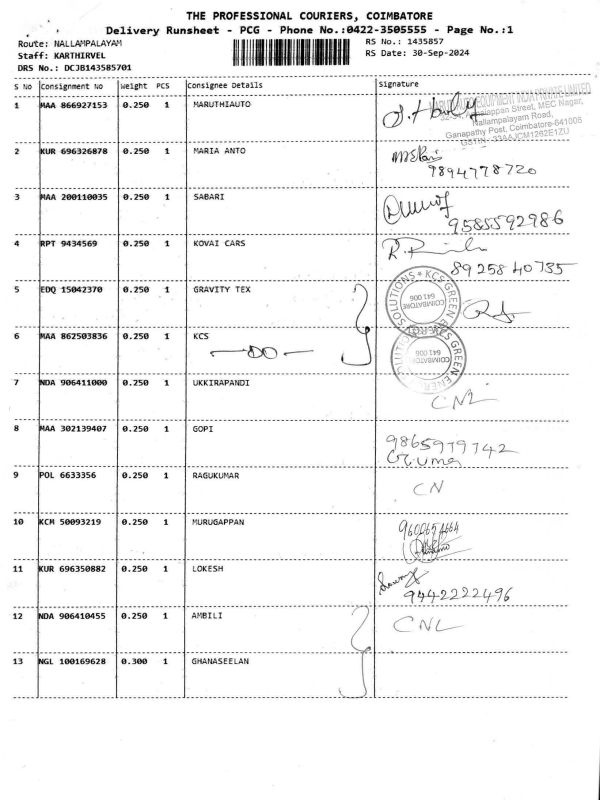 THE PROFESSIONAL COURIERS, COIMBATORE
Delivery Runsheet - PCG - Phone No.:0422-3505555 - Page No.:1
Route: NALLAMPALAYAM
RS No.: 1435857
Staff: KARTHIRVEL
RS Date: 30-Sep-2024
DRS No.: DCJB143585701
S No Consignment No Weight PCS Consignee Details Signature
1 MAA 866927153 0.250 1 MARUTHIAUTO
MEC Nagar,
Nallampalayam Road,
Ganapathy Post, Coimbatore-641006
2 KUR 696326878 0.250 1 MARIA ANTO
9894778720
3 MAA 200110035 0.250 1 SABARI
9585592986
4 RPT 9434569 0.250 1 KOVAI CARS
8925840735
5 EDQ 15042370 0.250 1 GRAVITY TEX
KCS GREEN ENERGY SOLUTIONS
COIMBATORE
641 006
6 MAA 862503836 0.250 1 KCS
DO
KCS GREEN ENERGY SOLUTIONS
COIMBATORE
641 006
7 NDA 906411000 0.250 1 UKKIRAPANDI
CNL
8 MAA 302139407 0.250 1 GOPI
9865979742
9 POL 6633356 0.250 1 RAGUKUMAR
CN
10 KCM 50093219 0.250 1 MURUGAPPAN
11 KUR 696350882 0.250 1 LOKESH
9442222496
12 NDA 906410455 0.250 1 AMBILI
CNL
13 NGL 100169628 0.300 1 GHANASEELAN